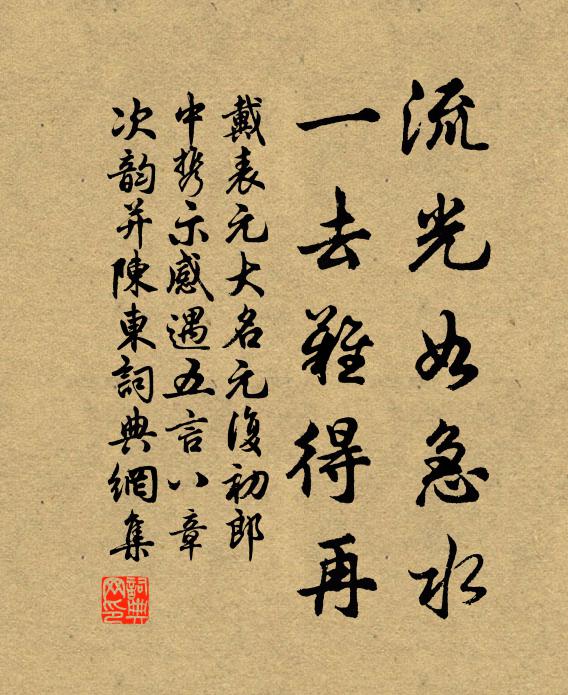 流光如急水
一去難得再
戴表元大名元復初郎
中携示感遇五言八章
次韵并陳東詞典網集
詞典网印